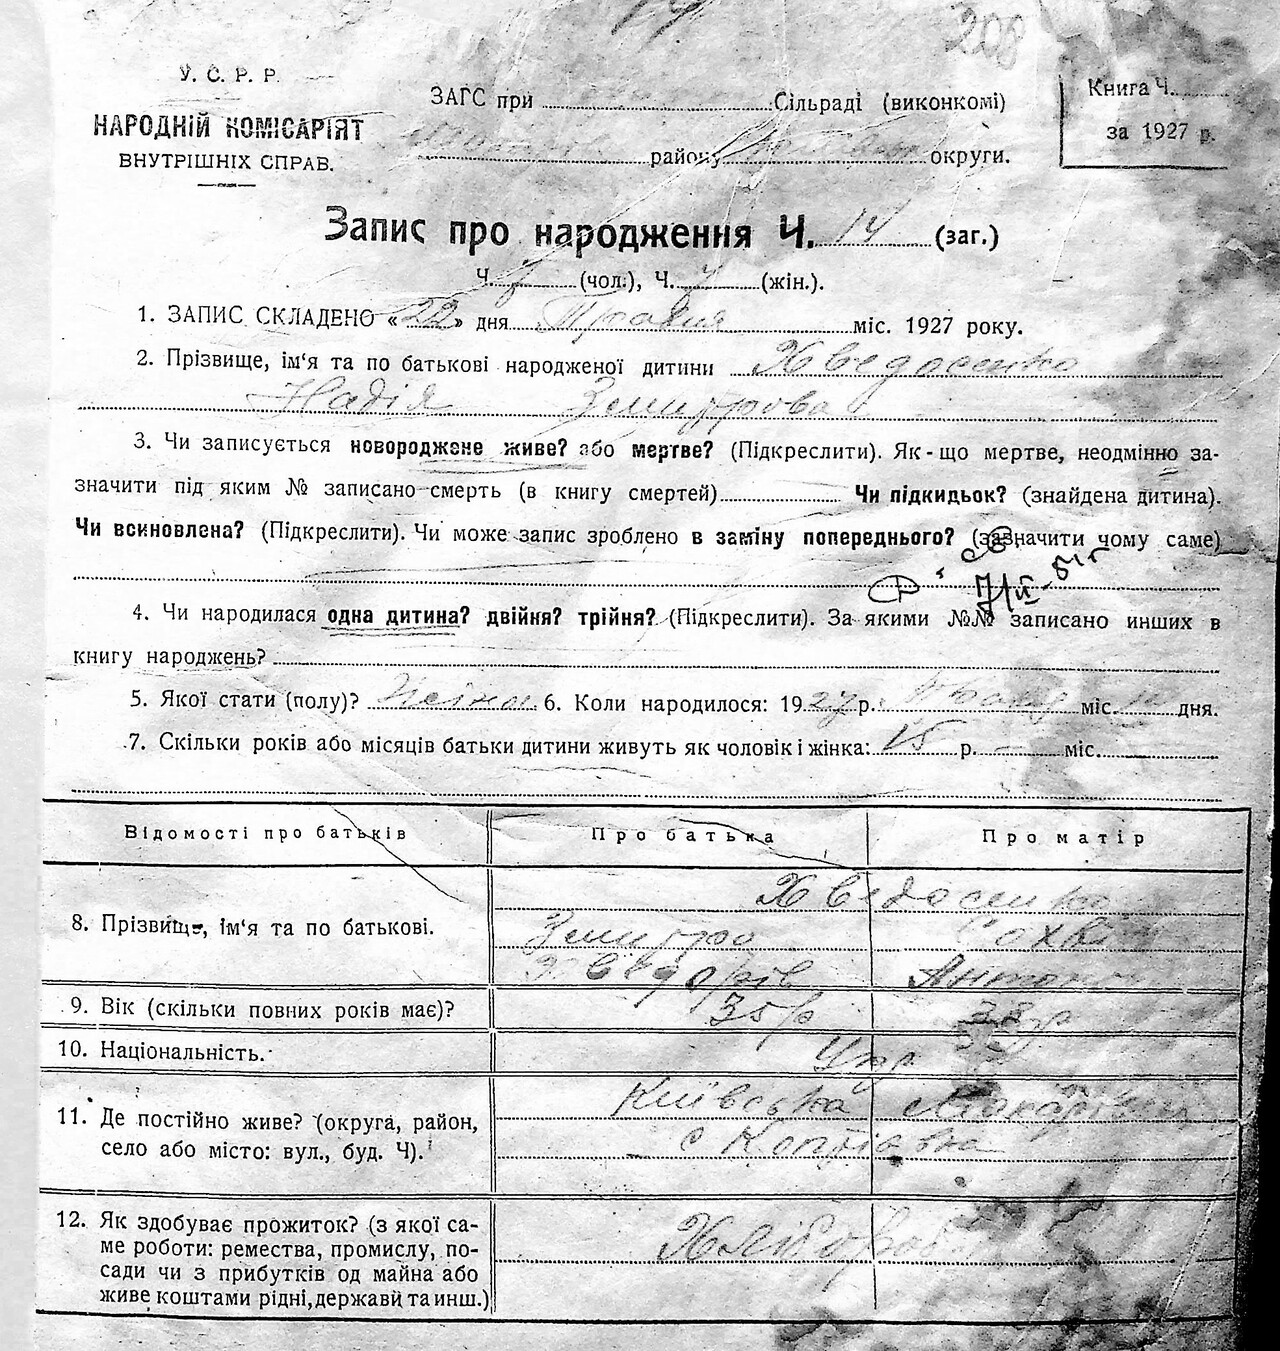 208
У. С. Р. Р.
НАРОДНІЙ КОМІСАРІЯТ
ВНУТРІШНІХ СПРАВ.
ЗАГС при Сільраді (виконкомі)
району округи.
Книга Ч.
за 1927 р.
Запис про народження Ч. 14 (заг.)
Ч. 7 (чол.), Ч. 7 (жін.).
1. ЗАПИС СКЛАДЕНО «22» дня Травня міс. 1927 року.
2. Прізвище, ім'я та по батькові народженої дитини Хведосенко
Надія Змитрова
3. Чи записується новороджене живе? або мертве? (Підкреслити). Як-що мертве, неодмінно за-
значити під яким № записано смерть (в книгу смертей) Чи підкидьок? (знайдена дитина).
Чи всиновлена? (Підкреслити). Чи може запис зроблено в заміну попереднього? (зазначити чому саме)
4. Чи народилася одна дитина? двійня? трійня? (Підкреслити). За якими №№ записано инших в
книгу народжень?
5. Якої стати (полу)? Жіноч 6. Коли народилося: 1927 р. міс. дня.
7. Скільки років або місяців батьки дитини живуть як чоловік і жінка: 15 р. — міс.
Відомості про батьків Про батька Про матір
8. Прізвище, ім'я та по батькові. Хведосенко
Змитро Сохвія
Хведорів Антон
9. Вік (скільки повних років має)? 35 р
10. Національність. Укр
11. Де постійно живе? (округа, район, Київська Макарівськ
село або місто: вул., буд. Ч). с Копіївка
12. Як здобуває прожиток? (з якої са-
ме роботи: ремества, промислу, по- Хлібороб
сади чи з прибутків од майна або
живе коштами рідні, держави та инш.)